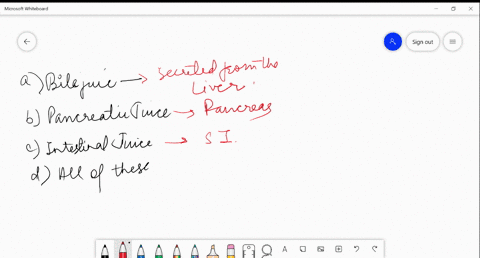 Microsoft Whiteboard
Sign out
a) Bile juic → Secreted from the
Liver.
b) Pancreatic Juice → Pancreas
c) Intestinal Juice → S I.
d) All of these